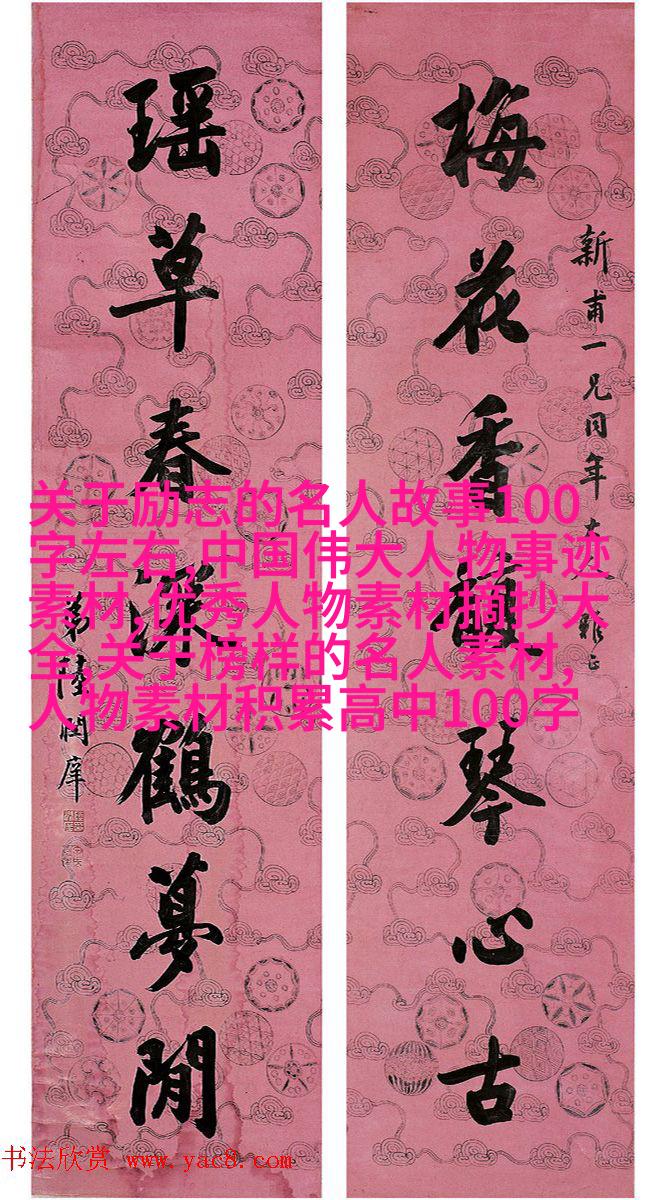 梅花香琴心古
新甫一兄同年大雅正
瑶草春深鶴夢閒
弟陸潤庠
关于励志的名人故事100
字左右,中国伟大人物事迹
素材,优秀人物素材摘抄大
全,关于榜样的名人素材,
人物素材积累高中100字
书法欣赏 www.yac8.com